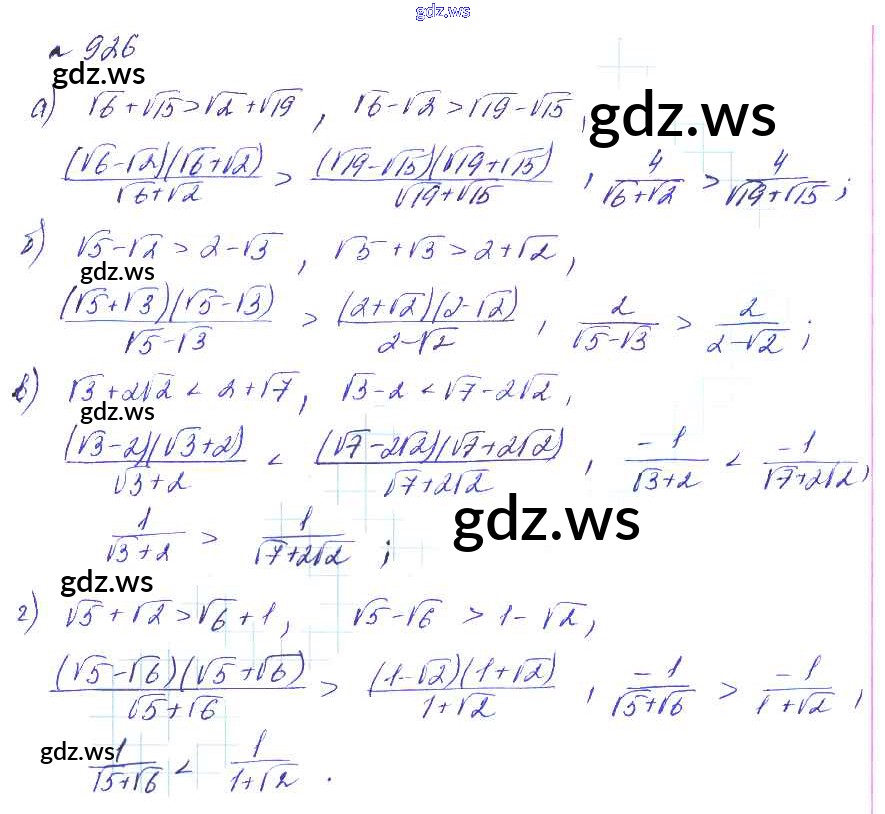 gdz.ws
№ 926
gdz.ws
а) √6 + √15 > √2 + √19 , √6 − √2 > √19 − √15 ,
gdz.ws
(√6−√2)(√6+√2) / (√6+√2) > (√19−√15)(√19+√15) / (√19+√15) , 4 / (√6+√2) > 4 / (√19+√15) ;
б) √5 − √2 > 2 − √3 , √5 + √3 > 2 + √2 ,
gdz.ws
(√5+√3)(√5−√3) / (√5−√3) > (2+√2)(2−√2) / (2−√2) , 2 / (√5−√3) > 2 / (2−√2) ;
в) √3 + 2√2 < 2 + √7 , √3 − 2 < √7 − 2√2 ,
gdz.ws
(√3−2)(√3+2) / (√3+2) < (√7−2√2)(√7+2√2) / (√7+2√2) , −1 / (√3+2) < −1 / (√7+2√2) ,
1 / (√3+2) > 1 / (√7+2√2) ;
gdz.ws
gdz.ws
г) √5 + √2 > √6 + 1 , √5 − √6 > 1 − √2 ,
(√5−√6)(√5+√6) / (√5+√6) > (1−√2)(1+√2) / (1+√2) , −1 / (√5+√6) > −1 / (1+√2) ,
gdz.ws
1 / (√5+√6) < 1 / (1+√2) .